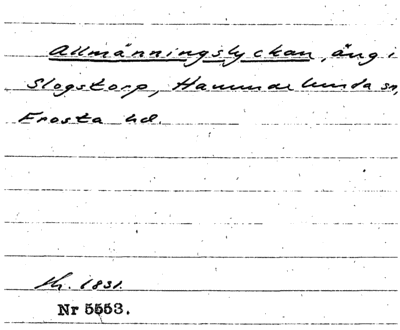 Allmänningslyckan, äng i
Slogstorp, Hammarlunda sn,
Frosta hd.
Sk. 1831.
Nr 5553.